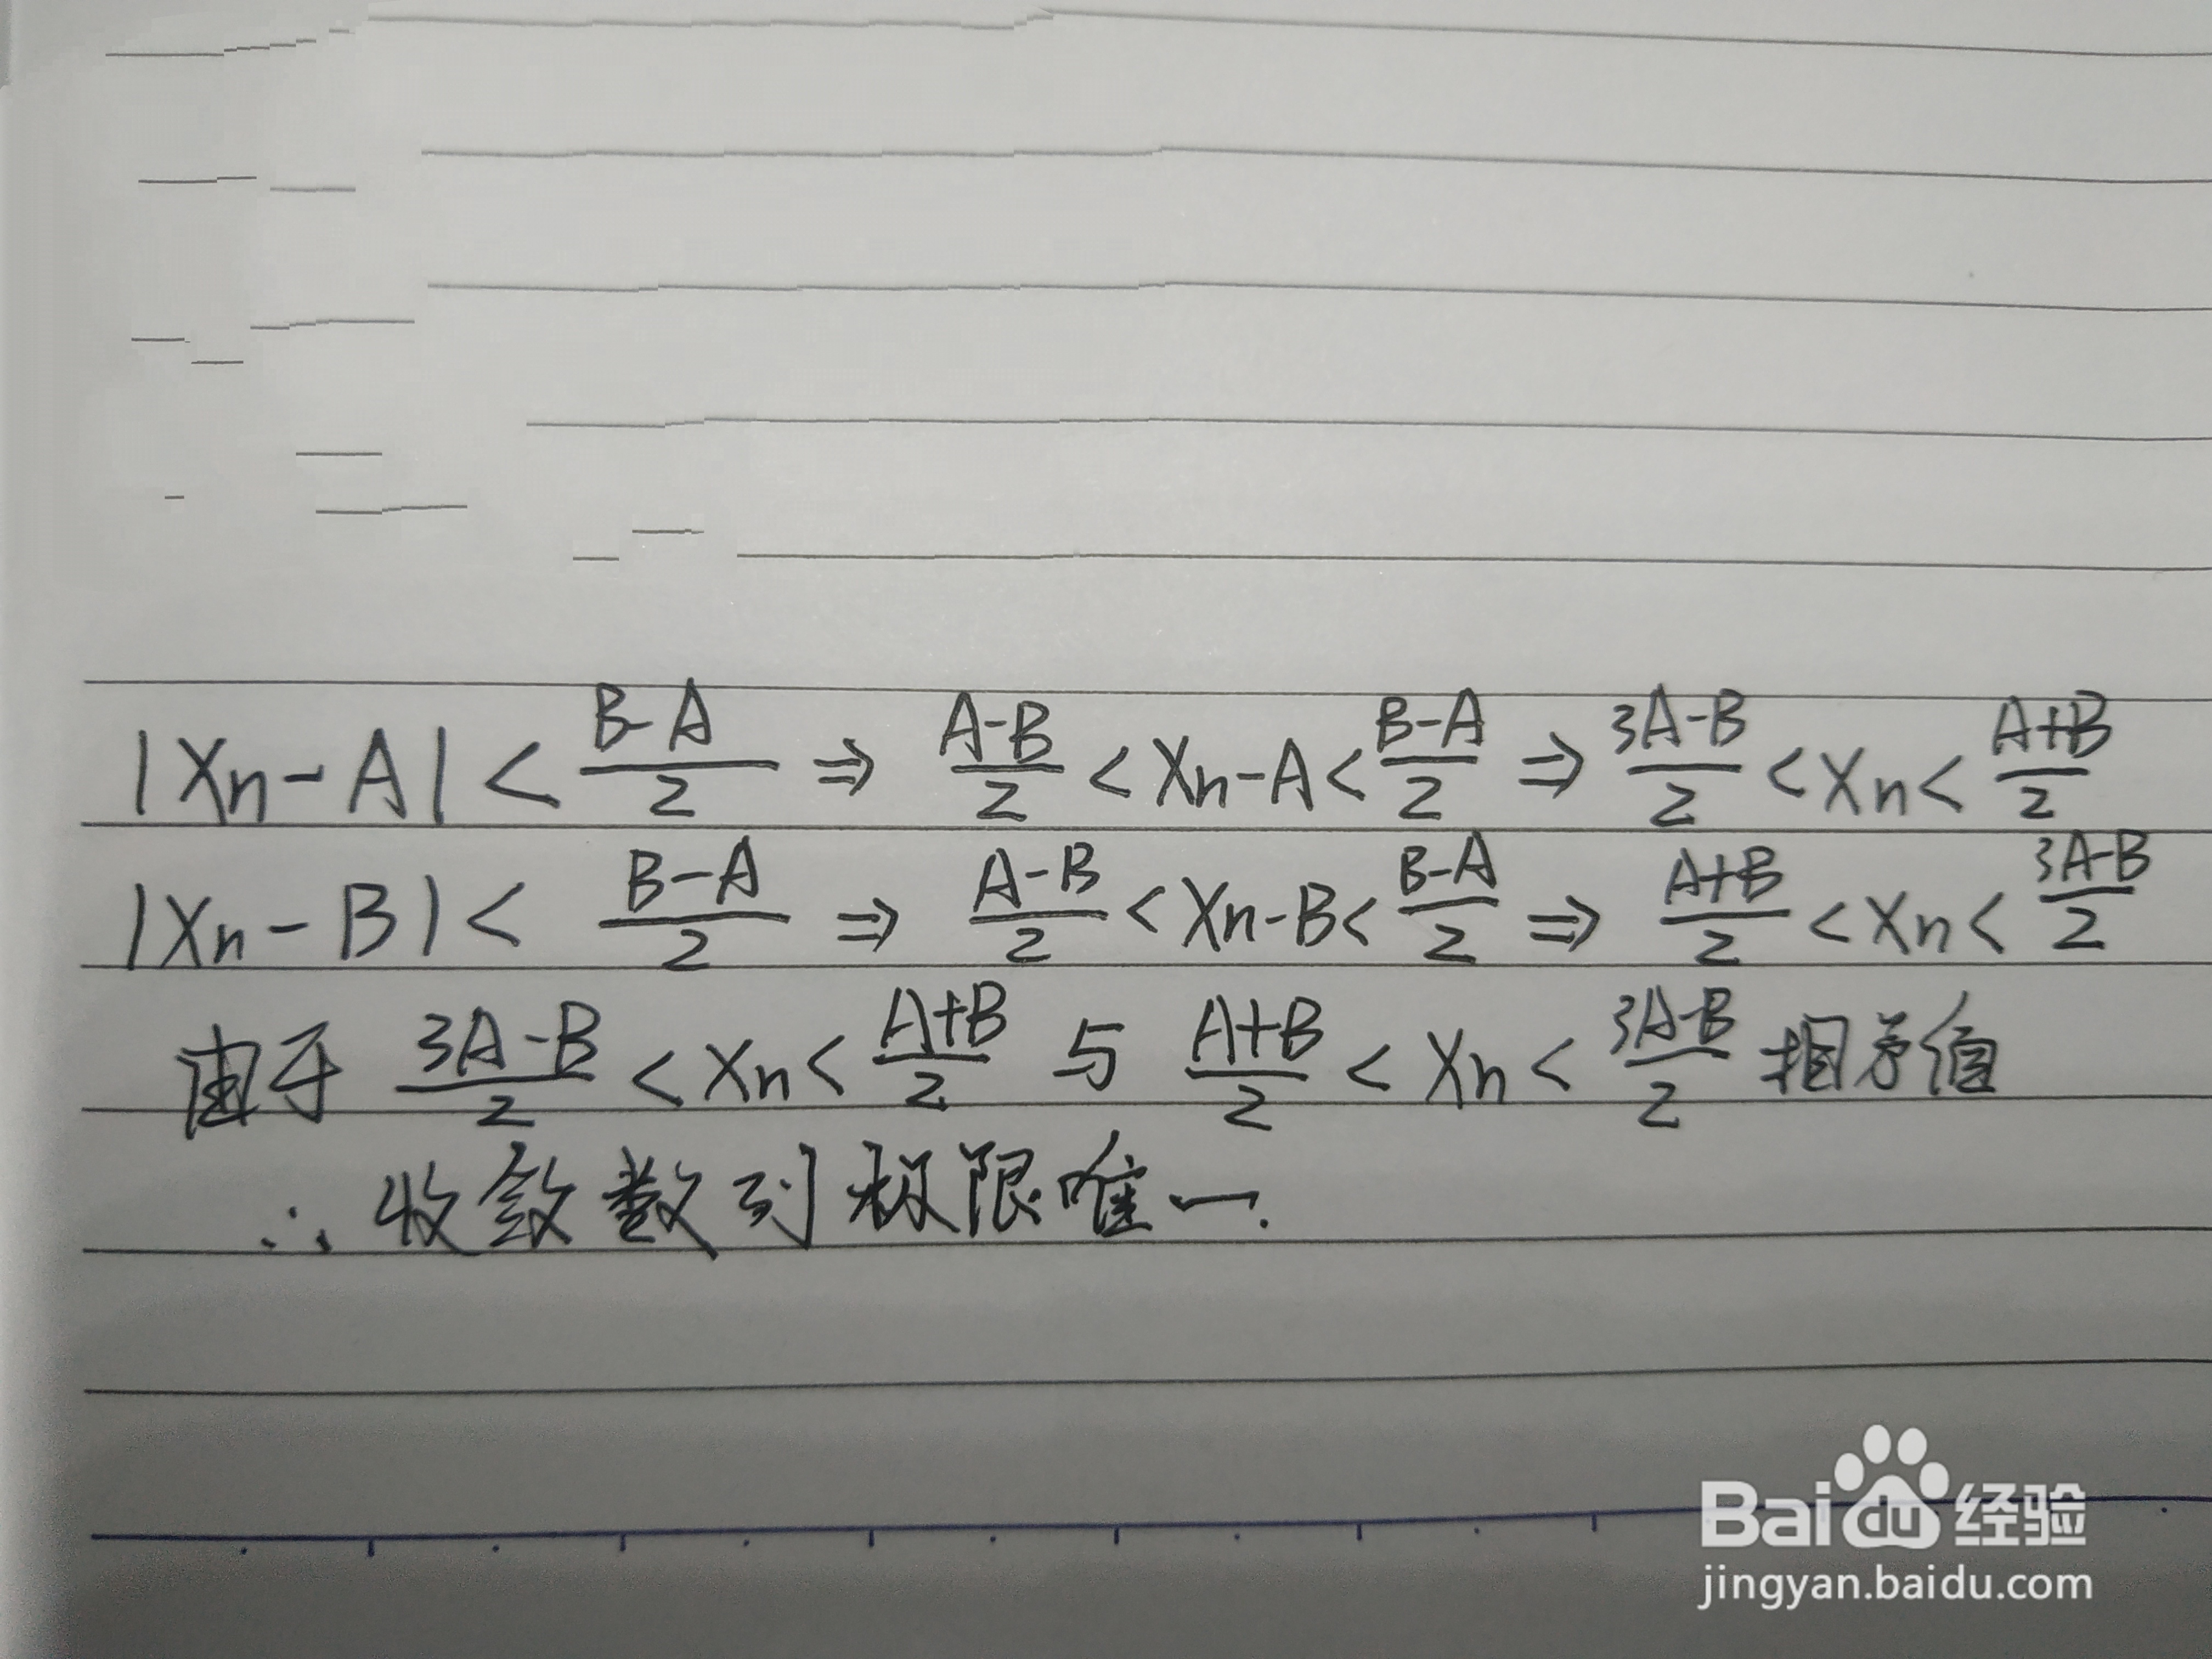 |Xn-A|<(B-A)/2 ⇒ (A-B)/2<Xn-A<(B-A)/2 ⇒ (3A-B)/2<Xn<(A+B)/2
|Xn-B|<(B-A)/2 ⇒ (A-B)/2<Xn-B<(B-A)/2 ⇒ (A+B)/2<Xn<(3A-B)/2
由于 (3A-B)/2<Xn<(A+B)/2 与 (A+B)/2<Xn<(3A-B)/2 相矛
∴收敛数列极限唯一.
Baidu 经验
jingyan.baidu.com